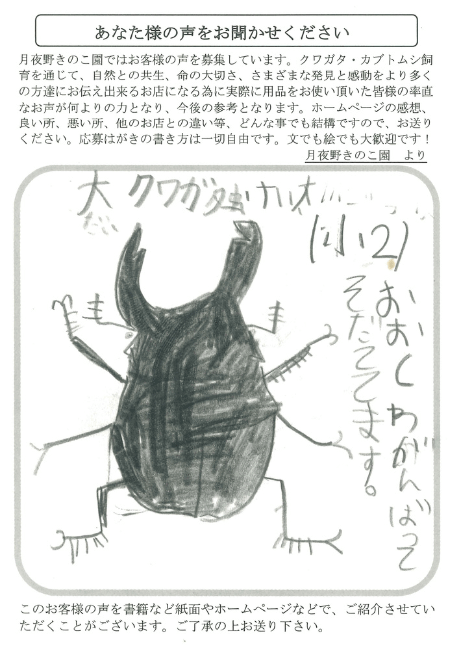 あなた様の声をお聞かせください
月夜野きのこ園ではお客様の声を募集しています。クワガタ・カブトムシ飼
育を通じて、自然との共生、命の大切さ、さまざまな発見と感動をより多く
の方達にお伝え出来るお店になる為に実際に用品をお使い頂いた皆様の率直
なお声が何よりの力となり、今後の参考となります。ホームページの感想、
良い所、悪い所、他のお店との違い等、どんな事でも結構ですので、お送り
ください。応募はがきの書き方は一切自由です。文でも絵でも大歓迎です！
月夜野きのこ園　より
大 クワガタ虫
だい
(小2)
おおくわがんばって
そだててます。
このお客様の声を書籍など紙面やホームページなどで、ご紹介させてい
ただくことがございます。ご了承の上お送り下さい。